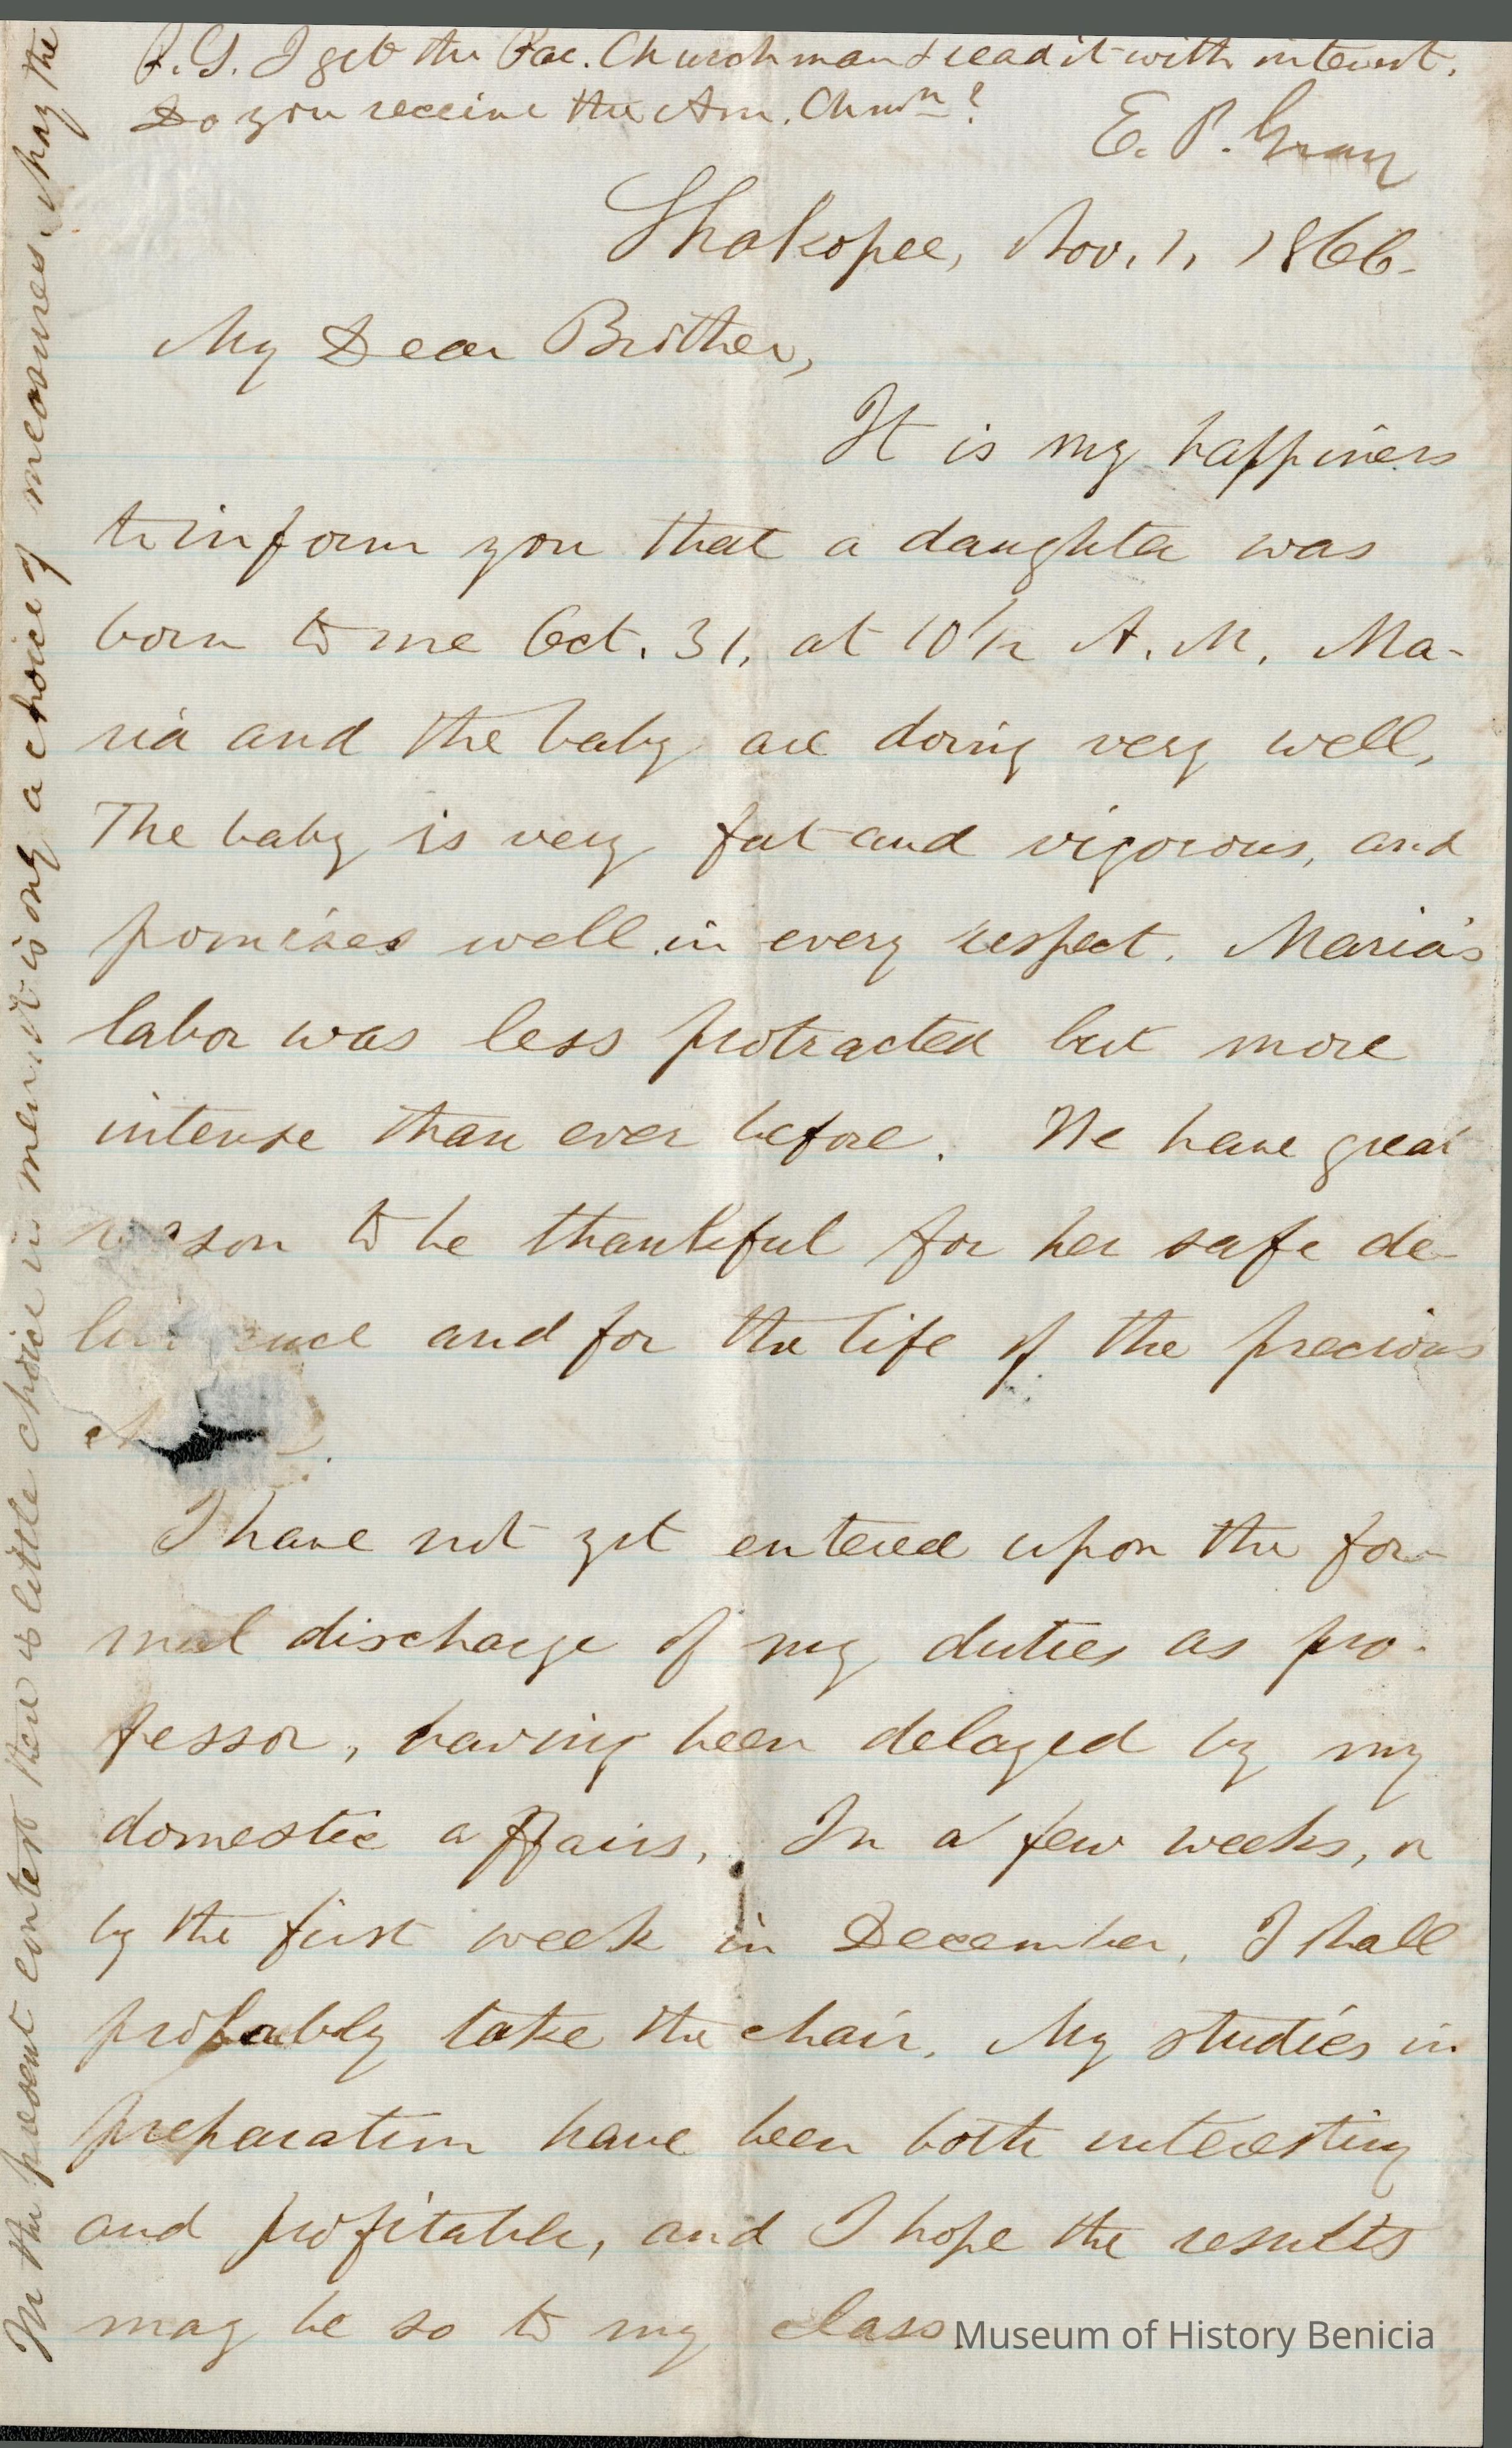 P.S. I get the Pac. Churchman & read it with interest.
Do you receive the Am. Chmn?
E. P. Gray
Shakopee, Nov. 1, 1866.
My Dear Brother,
It is my happiness
to inform you that a daughter was
born to me Oct. 31, at 10 1/2 A. M. Ma-
ria and the baby are doing very well.
The baby is very fat and vigorous, and
promises well in every respect. Maria's
labor was less protracted but more
intense than ever before. We have great
reason to be thankful for her safe de-
liverence and for the life of the precious
I have not yet entered upon the for-
mal discharge of my duties as pro-
fessor, having been delayed by my
domestic affairs. In a few weeks, or
by the first week in December, I shall
probably take the chair. My studies in
preparation have been both interesting
and profitable, and I hope the results
may be so to my class.
In the present contest there is little choice in men. it is only a choice of measures. May the
Museum of History Benicia